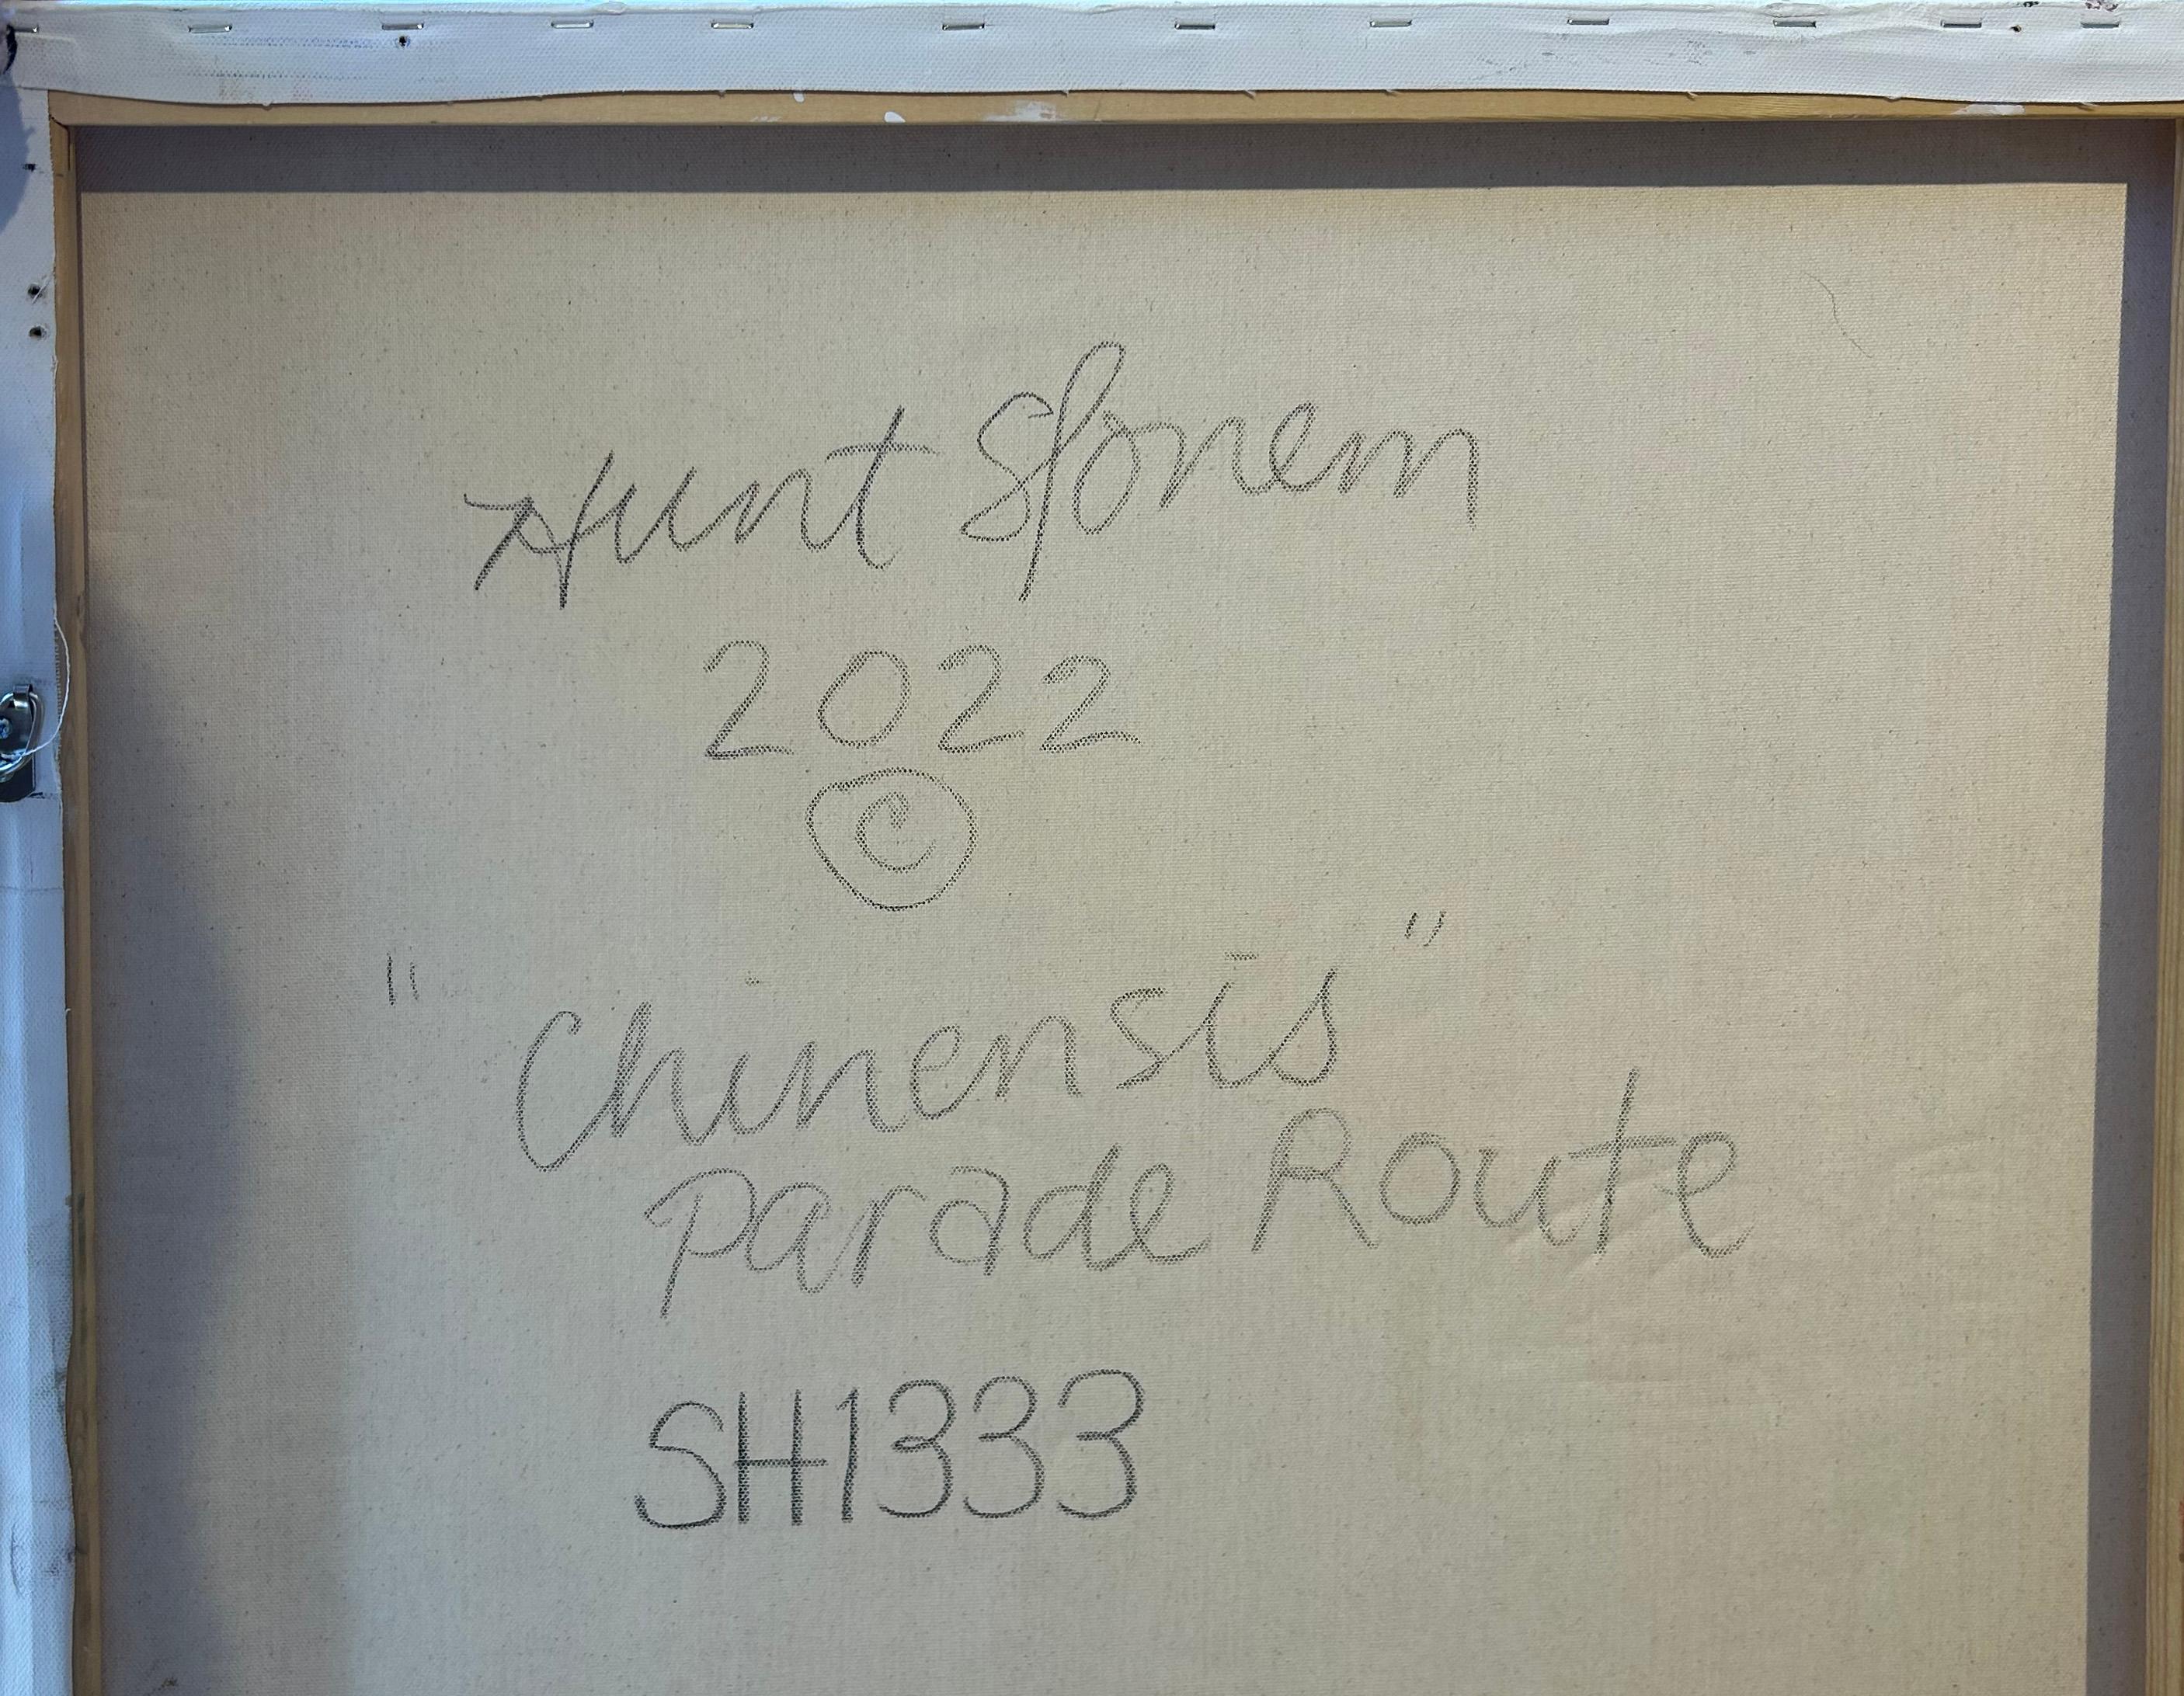 Hunt Slonem
2022
©
"Chinensis"
Parade Route
SH1333